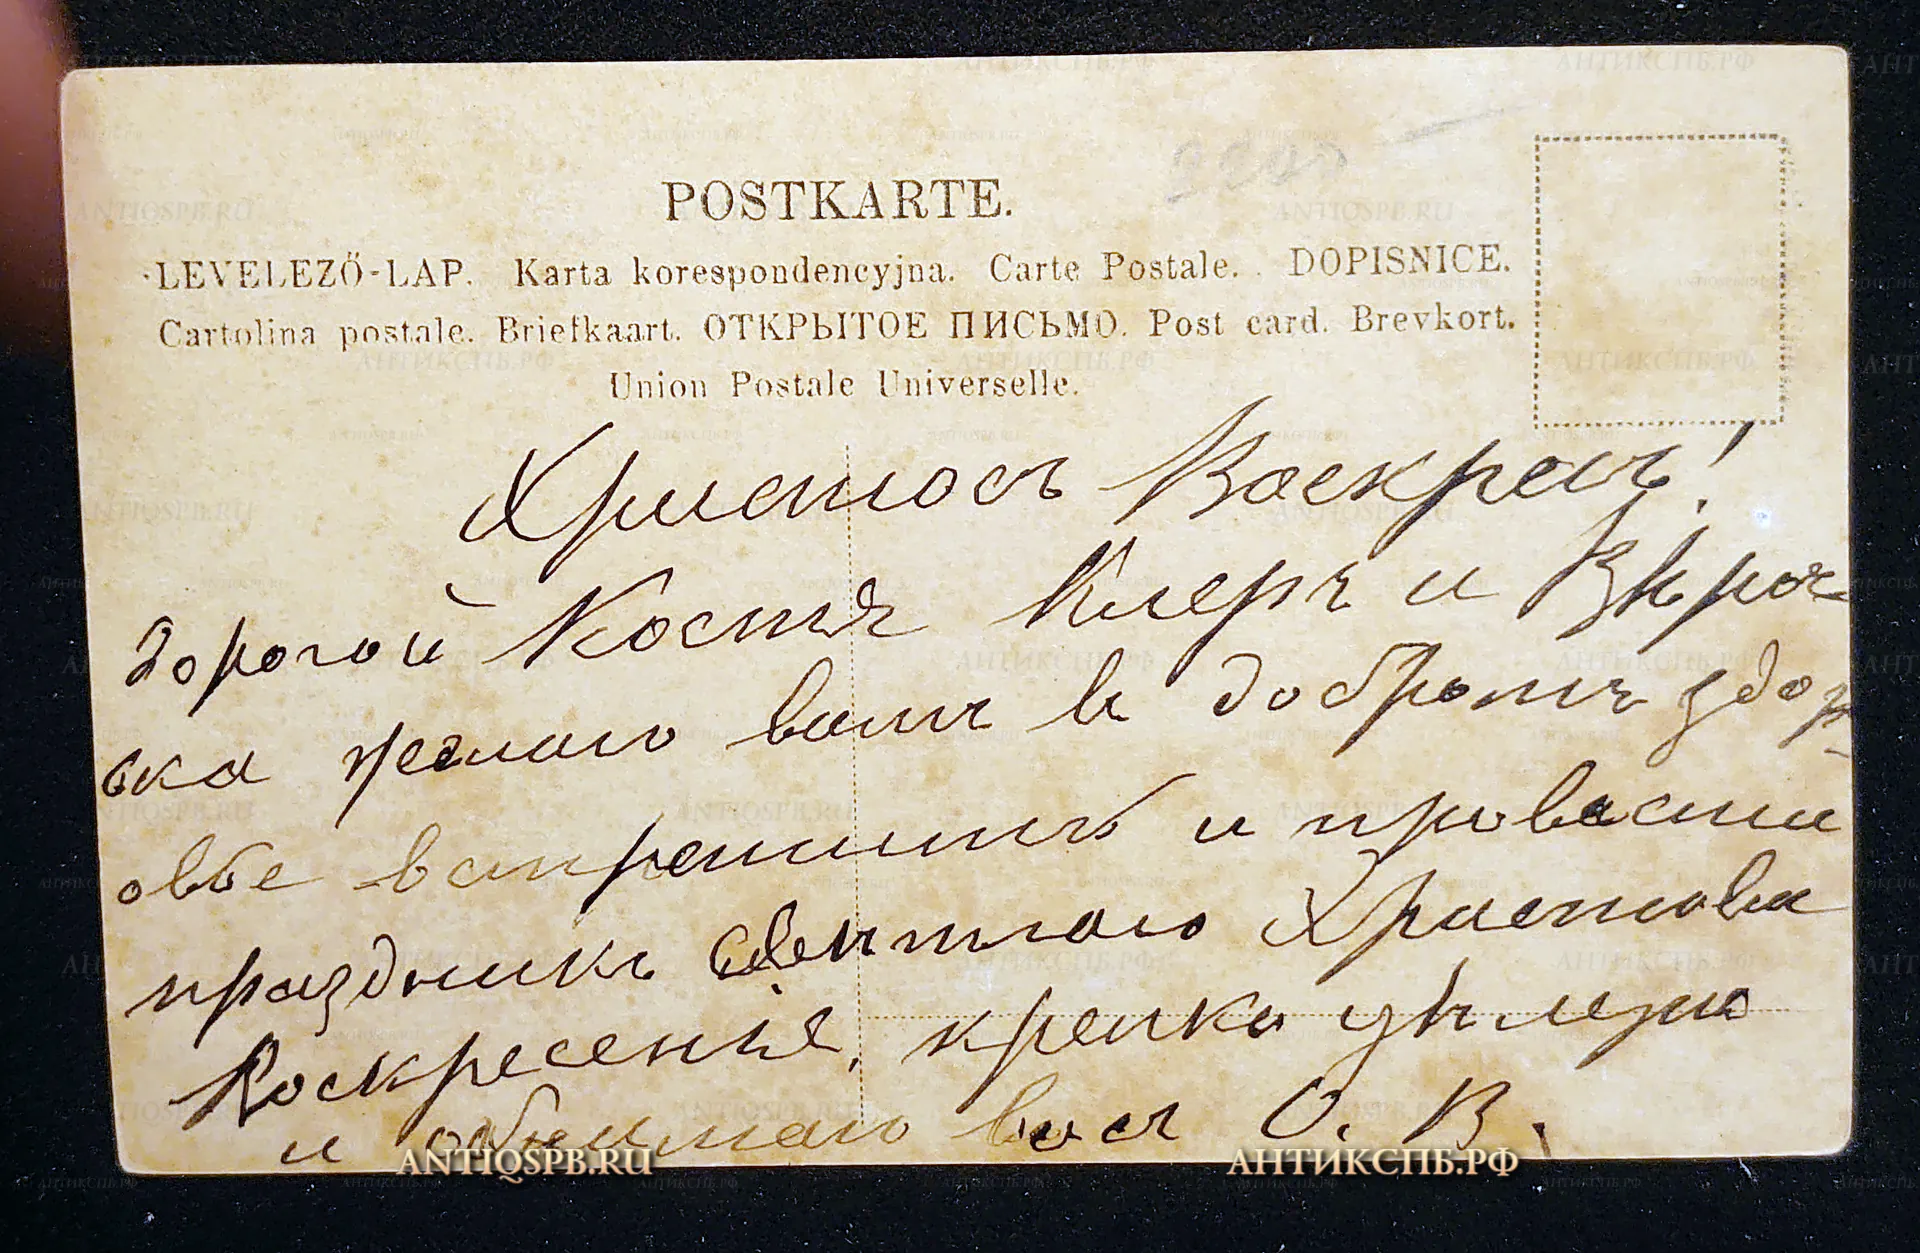 POSTKARTE.
LEVELEZŐ-LAP. Karta korespondencyjna. Carte Postale. DOPISNICE.
Cartolina postale. Briefkaart. ОТКРЫТОЕ ПИСЬМО. Post card. Brevkort.
Union Postale Universelle.
Христосъ Воскресъ!
Дорогой Костя Клеръ и Вѣроч-
ка желаю вамъ въ добромъ здор-
овье встретить и провести
праздникъ Светлаго Христова
Воскресенье, крепко цѣлую
и обнимаю васъ О. В.
ANTIQSPB.RU АНТИКСПБ.РФ